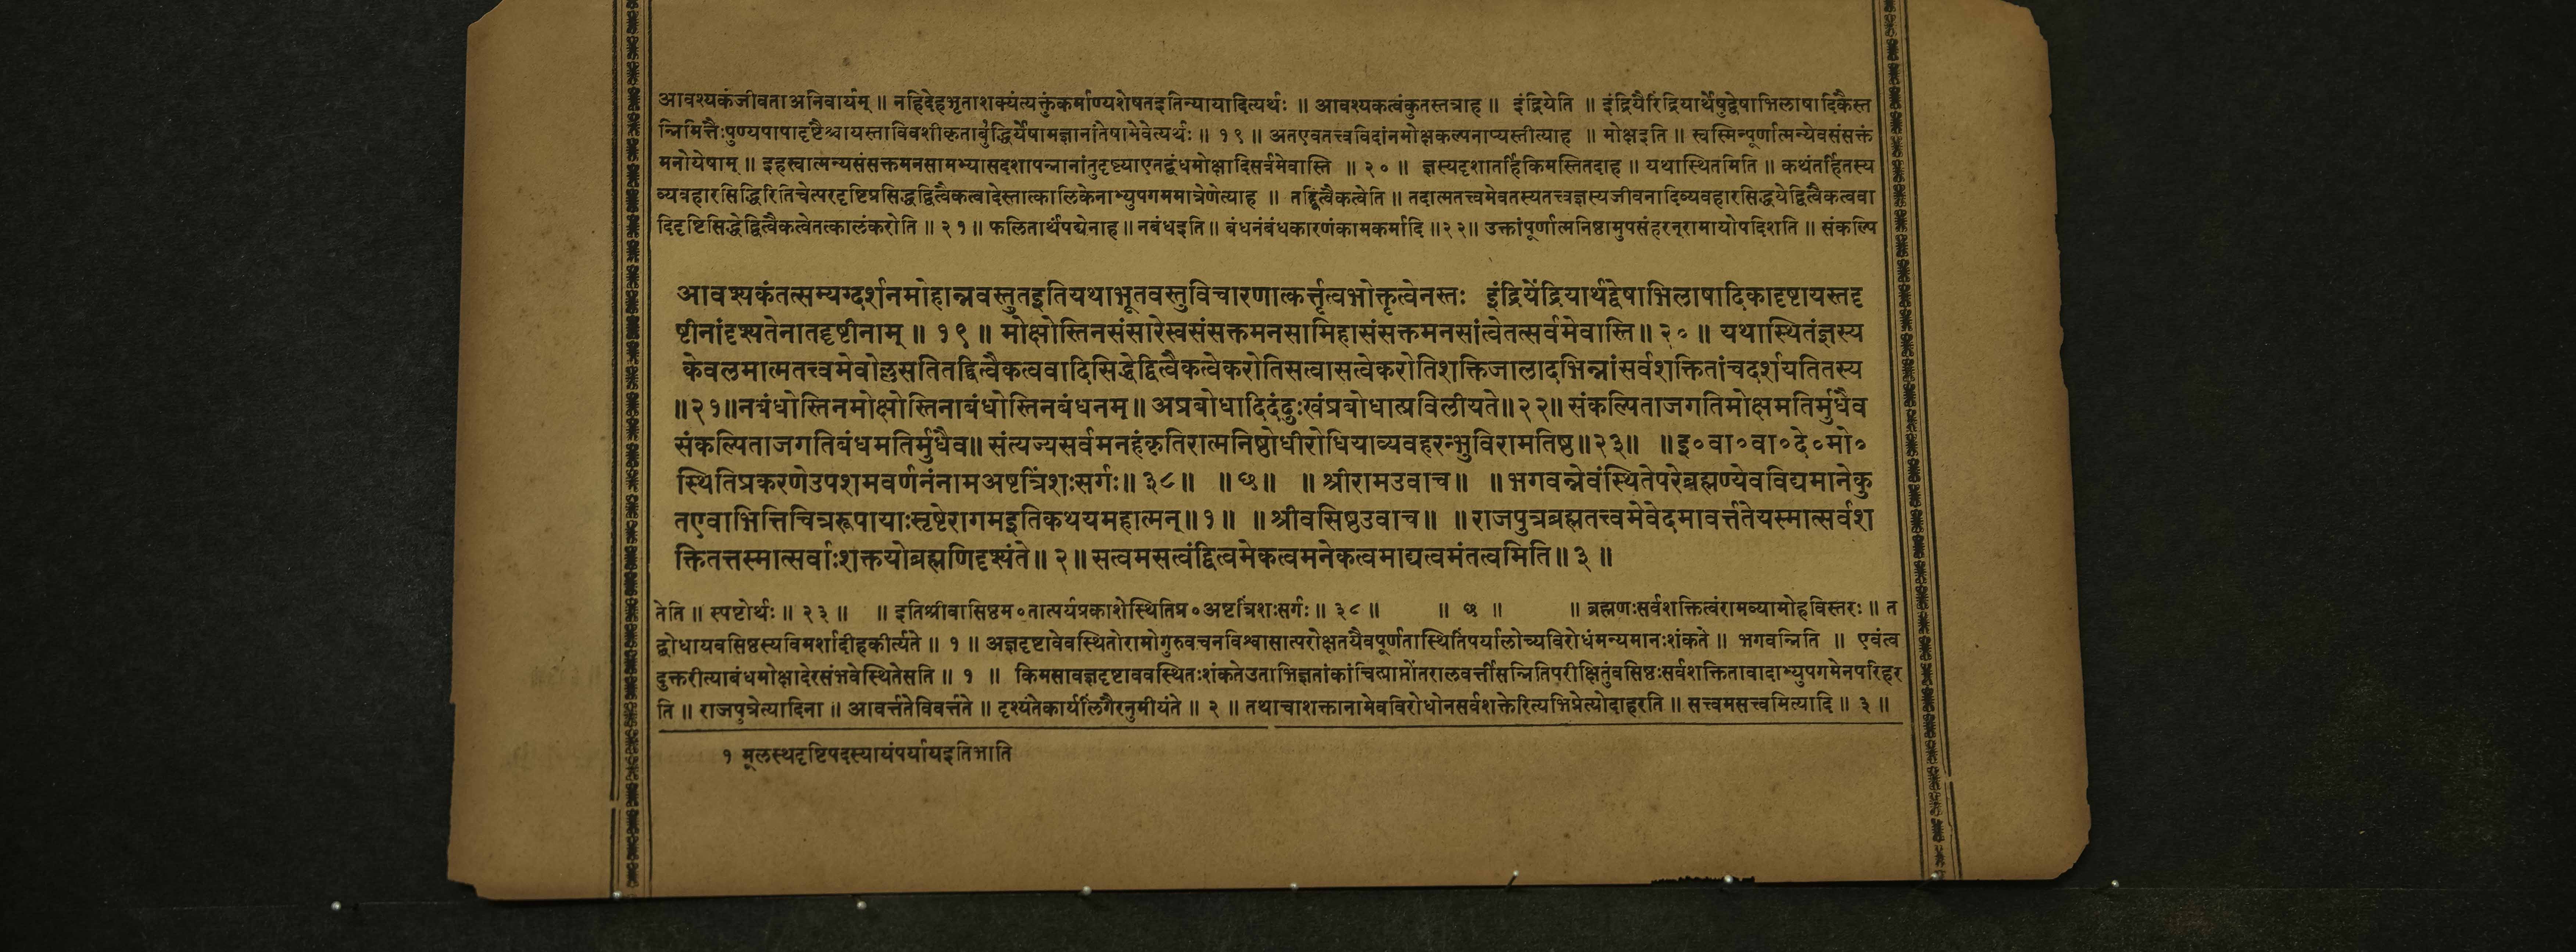 आवश्यकंजीवताअनिवार्यम् ॥ नहिदेहभृताशक्यंत्यक्तुंकर्माण्यशेषतइतिन्यायादित्यर्थः ॥ आवश्यकत्वंकुतस्तत्राह ॥ इंद्रियेति ॥ इंद्रियैरिंद्रियार्थेषुद्वेषाभिलाषादिकैस्त
न्निमित्तैःपुण्यपापादृष्टैश्चायस्ताविवशीकृताबुंद्धिर्येषामज्ञानांतेषामेवेत्यर्थः ॥ १९ ॥ अतएवतत्त्वविदांनमोक्षकल्पनाप्यस्तीत्याह ॥ मोक्षइति ॥ स्वस्मिन्पूर्णात्मन्येवसंसक्तं
मनोयेषाम् ॥ इहस्वात्मन्यसंसक्तमनसामभ्यासदशापन्नानांतुदृष्ट्याएतद्बंधमोक्षादिसर्वमेवास्ति ॥ २० ॥ ज्ञस्यदृशातर्हिकिमस्तितदाह ॥ यथास्थितमिति ॥ कथंतर्हितस्य
व्यवहारसिद्धिरितिचेत्परदृष्टिप्रसिद्धद्वित्वैकत्वादेस्तात्कालिकेनाभ्युपगममात्रेणेत्याह ॥ तद्द्वित्वैकत्वेति ॥ तदात्मतत्त्वमेवतस्यतत्त्वज्ञस्यजीवनादिव्यवहारसिद्धयेद्वित्वैकत्ववा
दिदृष्टिसिद्धेद्वित्वैकत्वेतत्कालंकरोति ॥ २१ ॥ फलितार्थंपद्येनाह ॥ नबंधइति ॥ बंधनंबंधकारणंकामकर्मादि ॥२२॥ उक्तांपूर्णात्मनिष्ठामुपसंहरन्रामायोपदिशति ॥ संकल्पि
आवश्यकंतत्सम्यग्दर्शनमोहान्नवस्तुतइतियथाभूतवस्तुविचारणात्कर्त्तृत्वभोक्तृत्वेनस्तः इंद्रियेंद्रियार्थद्वेषाभिलाषादिकादृष्टायस्तदृ
ष्टीनांदृश्यतेनातदृष्टीनाम् ॥ १९ ॥ मोक्षोस्तिनसंसारेस्वसंसक्तमनसामिहासंसक्तमनसांत्वेतत्सर्वमेवास्ति॥ २० ॥ यथास्थितंज्ञस्य
केवलमात्मतत्त्वमेवोल्लसतितद्वित्वैकत्ववादिसिद्धेद्वित्वैकत्वेकरोतिसत्वासत्वेकरोतिशक्तिजालादभिन्नांसर्वशक्तितांचदर्शयतितस्य
॥२१॥नबंधोस्तिनमोक्षोस्तिनाबंधोस्तिनबंधनम्॥ अप्रबोधादिदंदुःखंप्रबोधात्प्रविलीयते॥२२॥ संकल्पिताजगतिमोक्षमतिर्मुधैव
संकल्पिताजगतिबंधमतिर्मुधैव॥ संत्यज्यसर्वमनहंकृतिरात्मनिष्ठोधीरोधियाव्यवहरन्भुविरामतिष्ठ॥२३॥ ॥इ०वा०वा०दे०मो०
स्थितिप्रकरणेउपशमवर्णनंनामअष्टत्रिंशःसर्गः॥ ३८॥ ॥ छ॥ ॥ श्रीरामउवाच॥ ॥ भगवन्नेवंस्थितेपरेब्रह्मण्येवविद्यमानेकु
तएवाभित्तिचित्ररूपायाःसृष्टेरागमइतिकथयमहात्मन्॥१॥ ॥श्रीवसिष्ठउवाच॥ ॥राजपुत्रब्रह्मतत्त्वमेवेदमावर्त्ततेयस्मात्सर्वश
क्तितत्तस्मात्सर्वाःशक्तयोब्रह्मणिदृश्यंते॥ २॥ सत्वमसत्वंद्वित्वमेकत्वमनेकत्वमाद्यत्वमंतत्वमिति॥ ३ ॥
तेति ॥ स्पष्टोर्थः ॥ २३ ॥ ॥ इतिश्रीवासिष्ठम०तात्पर्यप्रकाशेस्थितिप्र०अष्टत्रिंशःसर्गः ॥ ३८ ॥ ॥ छ ॥ ॥ ब्रह्मणःसर्वशक्तित्वंरामव्यामोहविस्तरः ॥ त
द्बोधायवसिष्ठस्यविमर्शादीहकीर्त्यते ॥ १ ॥ अज्ञदृष्टावेवस्थितोरामोगुरुवचनविश्वासात्परोक्षतयैवपूर्णतास्थितिंपर्यालोच्यविरोधंमन्यमानःशंकते ॥ भगवन्निति ॥ एवंत्व
दुक्तरीत्याबंधमोक्षादेरसंभवेस्थितेसति ॥ १ ॥ किमसावज्ञदृष्टाववस्थितःशंकतेउताभिज्ञतांकांचित्प्राप्तोंतरालवर्त्तीसन्नितिपरीक्षितुंवसिष्ठःसर्वशक्तितावादाभ्युपगमेनपरिहर
ति ॥ राजपुत्रेत्यादिना ॥ आवर्त्ततेविवर्त्तते ॥ दृश्यंतेकार्यलिंगैरनुमीयंते ॥ २ ॥ तथाचाशक्तानामेवविरोधोनसर्वशक्तेरित्यभिप्रेत्योदाहरति ॥ सत्त्वमसत्त्वमित्यादि ॥ ३ ॥
१ मूलस्थदृष्टिपदस्यायंपर्यायइतिभाति